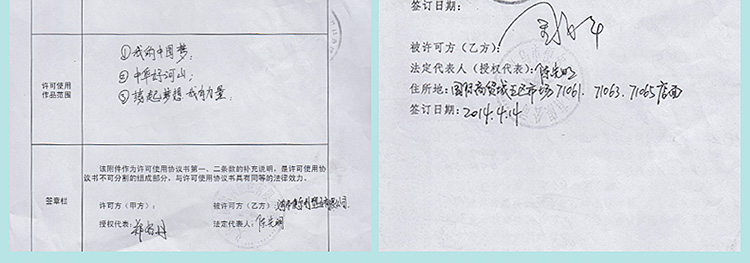 许可使用
作品范围
①我的中国梦;
②中华好河山;
③撑起梦想 我有力量.
该附件作为许可使用协议书第一、二条款的补充说明,是许可使用协
议书不可分割的组成部分,与许可使用协议书具有同等的法律效力。
签章栏
许可方(甲方):
被许可方(乙方):
授权代表:
法定代表人:陈光明
签订日期:
被许可方(乙方):
法定代表人(授权代表):陈光明
住所地:国际商贸城五区市场71061、71063、71065店面
签订日期:2014.4.14